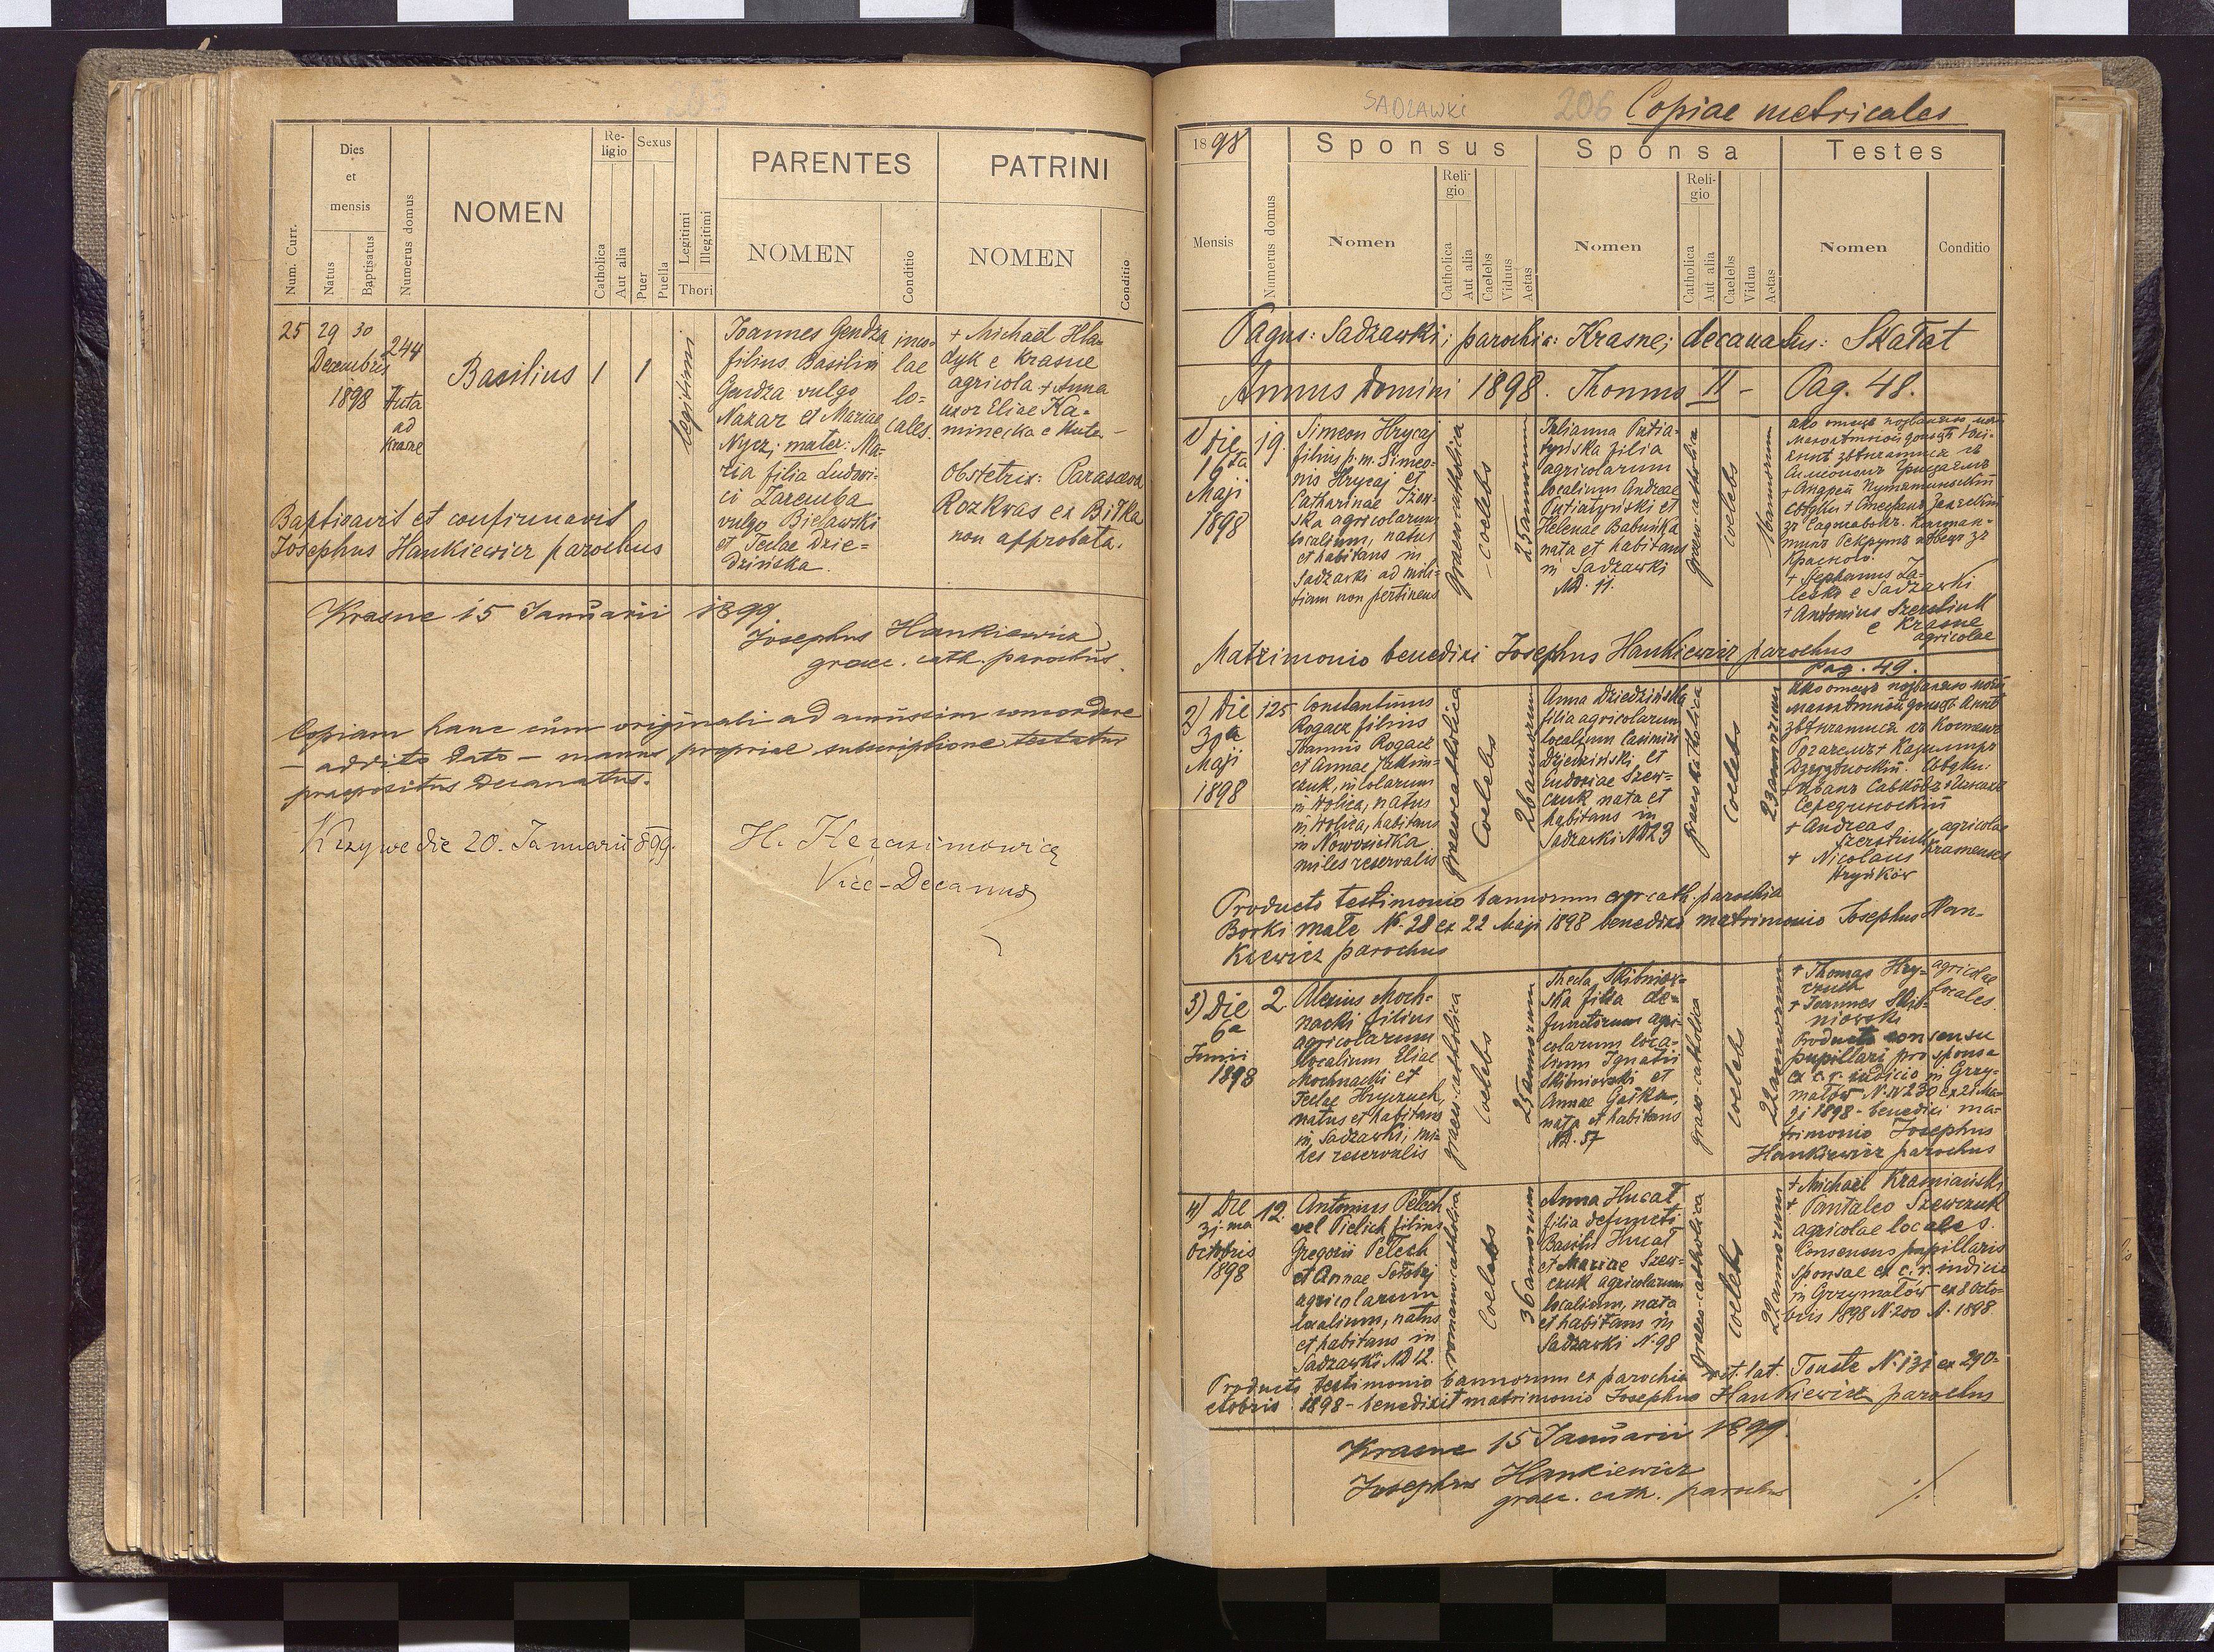 205
Num. Curr.
Dies
et
mensis
Natus
Baptisatus
Numerus domus
NOMEN
Re-
ligio
Catholica
Aut alia
Sexus
Puer
Puella
Legitimi
Illegitimi
Thori
PARENTES
NOMEN
Conditio
PATRINI
NOMEN
Conditio
25
29 30
Decembris
1898
244
Huta
ad
Krasne
Basilius
1
1
legitimi
Joannes Gendza
filius Basilii
Gendza vulgo
Nazar et Mariae
Nycz; mater: Ma-
ria filia Ludovi-
ci Zaremba
vulgo Bielawski
et Teclae Dzie-
dzińska.
inco-
lae
lo-
cales.
+ Michaël Hla-
dyk e Krasne
agricola + Anna
uxor Eliae Ka-
minecka e Huta
Obstetrix: Parasceva
Rozkwas ex Bitka
non approbata.
Baptisavit et confirmavit
Josephus Hankiewicz parochus
Krasne 15 Januarii 1899
Josephus Hankiewicz
graec. cath. parochus.
Copiam hanc cum originali ad amussim concordare
– addito dato – manus propriae subscriptione testatur
praepositus Decanatus.
Krzywe die 20. Januarii 899.
H. Herasimowicz
Vice-Decanus
SADZAWKI
206
Copiae metricales
1898
Mensis
Numerus domus
Sponsus
Nomen
Reli-
gio
Catholica
Aut alia
Caelebs
Viduus
Aetas
Sponsa
Nomen
Reli-
gio
Catholica
Aut alia
Caelebs
Vidua
Aetas
Testes
Nomen
Conditio
Pagus: Sadzawki; parochia: Krasne; decanatus: Skałat
Annus Domini 1898. Thomus II – Pag. 48.
1) Die
16ta
Maji
1898
19.
Simeon Hrycaj
filius p.m. Simeo-
nis Hrycaj et
Catharinae
ska agricolarum
localium, natus
et habitans in
Sadzawki ad mili-
tiam non pertinens
graeco-catholica
coelebs
25 annorum
Julianna Putia-
tyńska filia
agricolarum
localium Andreae
Putiatyński et
Helenae Babuńka
nata et habitans
in Sadzawki
ND. 11.
graeco-catholica
coelebs
16 annorum
яко отецъ позваляю моїй
малолѣтной
звѣнчатися зъ
Симеономъ Грицаемъ
+ Андрей Путятинскій
свѣдки + Стефанъ Залескій
зъ Садзавокъ.
Краснаго.
+ Stephanus Za-
leski e Sadzawki
+ Antonius Szerstiuk
e Krasne
agricolae
Matrimonio benedixi Josephus Hankiewicz parochus
Pag. 49.
2) Die
30a
Maji
1898
125
Constantinus
Rogacz filius
Joannis Rogacz
et Annae Jakim-
czuk, incolarum
in Wolica, natus
in Wolica, habitans
in Nowosiółka
miles reservalis
graeco-catholica
Coelebs
26 annorum
Anna Dziedzińska
filia agricolarum
localium Casimiri
Dziedziński et
Eudoxiae Szew-
czuk nata et
habitans in
Sadzawki ND 23
graeco-catholica
Coelebs
23 annorum
Яко отецъ позваляю моїй
малолѣтной Аннѣ
звѣнчатися зъ Костемъ
Рогачемъ + Казимиръ
Дзедзѣнскій. Свѣдки:
+ Иванъ Савковъ
+ Andreas
Szerstiuk
+ Nicolaus
Hryńków
agricolae
Krasnenses
Producto testimonio bannorum e gr. cath. parochia
Borki małe N. 28 ex 22 Maji 1898 benedixi matrimonio Josephus Han-
kiewicz parochus
3) Die
6a
Junii
1898
2
Alexius Moch-
nacki filius
agricolarum
localium Eliae
Mochnacki et
Teclae Hryczuch,
natus et habitans
in Sadzawki; mi-
les reservalis
graeco-catholica
Coelebs
25 annorum
Thecla Skibniow-
ska filia de-
functorum agri-
colarum loca-
lium Ignatii
Skibniowski et
Annae Gaśka,
nata et habitans
ND. 57
graeco-catholica
Coelebs
22 annorum
+ Thomas Hry-
czuch
+ Joannes Skib-
niowski
agricolae
locales.
Producto consensu
pupillari pro sponsa
ex c.r. iudicio in Grzy-
małów N. IV 230 ex 21 Ma-
ji 1898 – benedixi ma-
trimonio Josephus
Hankiewicz parochus
4) Die
31-ma
Octobris
1898
12.
Antonius Pełech
vel Pielich filius
Gregorii Pełech
et Annae Sołobij
agricolarum
localium, natus
et habitans in
Sadzawki ND 12.
romano-catholica
Coelebs
36 annorum
Anna Hucał
filia defuncti
Basilii Hucał
et Mariae Szew-
czuk agricolarum
localium, nata
et habitans in
Sadzawki N. 98
graeco-catholica
Coelebs
22 annorum
+ Michaël Krasniański
+ Pantaleo Szewczuk
agricolae locales.
Consensus pupillaris
sponsae ex c.r. iudicio
in Grzymałów ex 8 Octo-
bris 1898 N. 200 A. 1898.
Producto testimonio bannorum ex parochia rit. lat. Touste N. 131 ex 29 O-
ctobris 1898 – benedixit matrimonio Josephus Hankiewicz parochus
Krasne 15 Januarii 1899
Josephus Hankiewicz
graec. cath. parochus